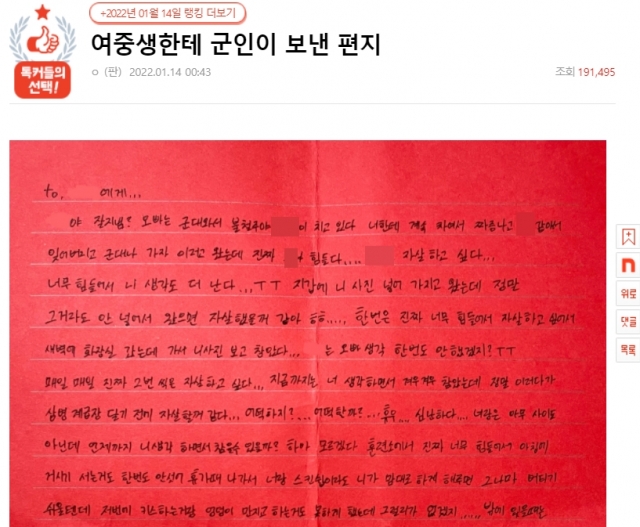 +2022년 01월 14일 랭킹 더보기
톡커들의
선택!
여중생한테 군인이 보낸 편지
ㅇ (판) 2022.01.14 00:43
조회 191,495
to, 에게...
야 잘지냄? 오빠는 군대와서 이 치고 있다 너한테 계속 차여서 짜증나고 같아서
잊어버리고 군대나 가자 이러고 왔는데 진짜 힘들다.... 자살 하고 싶다...
너무 힘들어서 니 생각도 더 난다...ㅜㅜ 지갑에 니 사진 넣어 가지고 왔는데 정말
그거라도 안 넣어서 왔으면 자살했을꺼 같아 ...., 한번은 진짜 너무 힘들어서 자살하고 싶어서
새벽에 화장실 갔는데 가서 니사진 보고 참았다... 는 오빠생각 한번도 안했겠지?ㅜㅜ
매일 매일 진짜 그번 씩은 자살하고 싶다... 지금까지는 너 생각하면서 겨우겨우 참았는데 정말 이러다가
상병 계급장 달기 전에 자살할꺼 같다... 어떡하지?... 어떡할까?... 심난하다.... 너랑은 아무 사이도
아닌데 언제까지 니생각 하면서 참을수 있을까? 하아 모르겠다 훈련소에서 진짜 너무 힘들어서 아침에
거시기 서는거도 한번도 안섰어 휴가때 나가서 너랑 스킨쉽이라도 니가 맘대로 하게 해주면 그나마 버티기
쉬울텐데 저번에 키스하는거랑 만지고 하는거도 못하게 했는데 그럴리가 없겠지.....
위로
댓글
목록